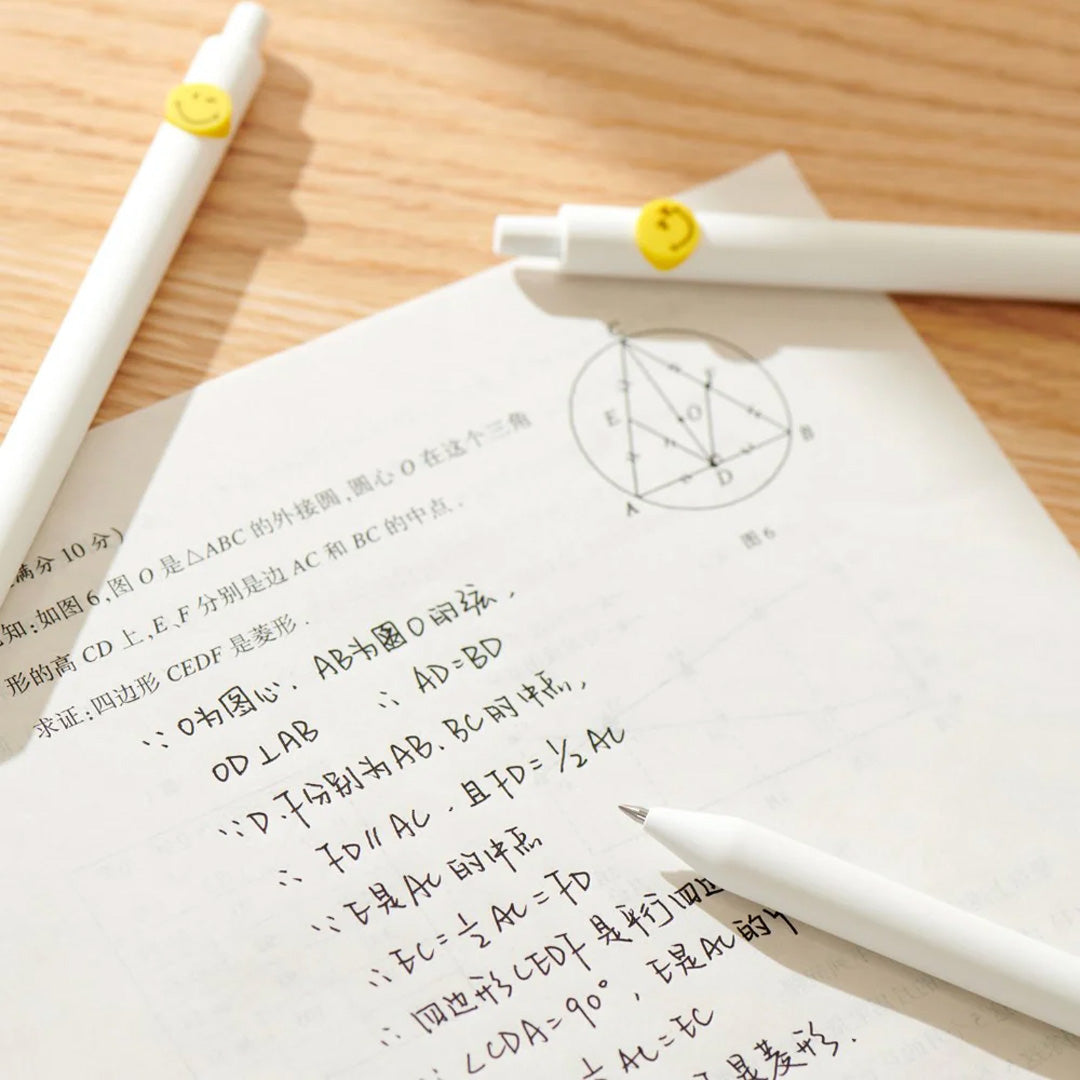 满分 10 分)
知:如图 6,图 O 是△ABC 的外接圆,圆心 O 在这个三角
形的高 CD 上,E、F 分别是边 AC 和 BC 的中点.
求证:四边形 CEDF 是菱形.
∵ O为圆心. AB为圆O的弦.
OD⊥AB ∴ AD=BD
∵D.F分别为AB.BC的中点,
∴ FD∥AC . 且FD=½AC
∵E是AC的中点
∴ EC=½AC=FD
∴ 四边形CEDF是平行四边
∵ ∠CDA=90°, E是AC的中
AC=EC
是菱形.
C
F
E
O
B
D
A
图 6